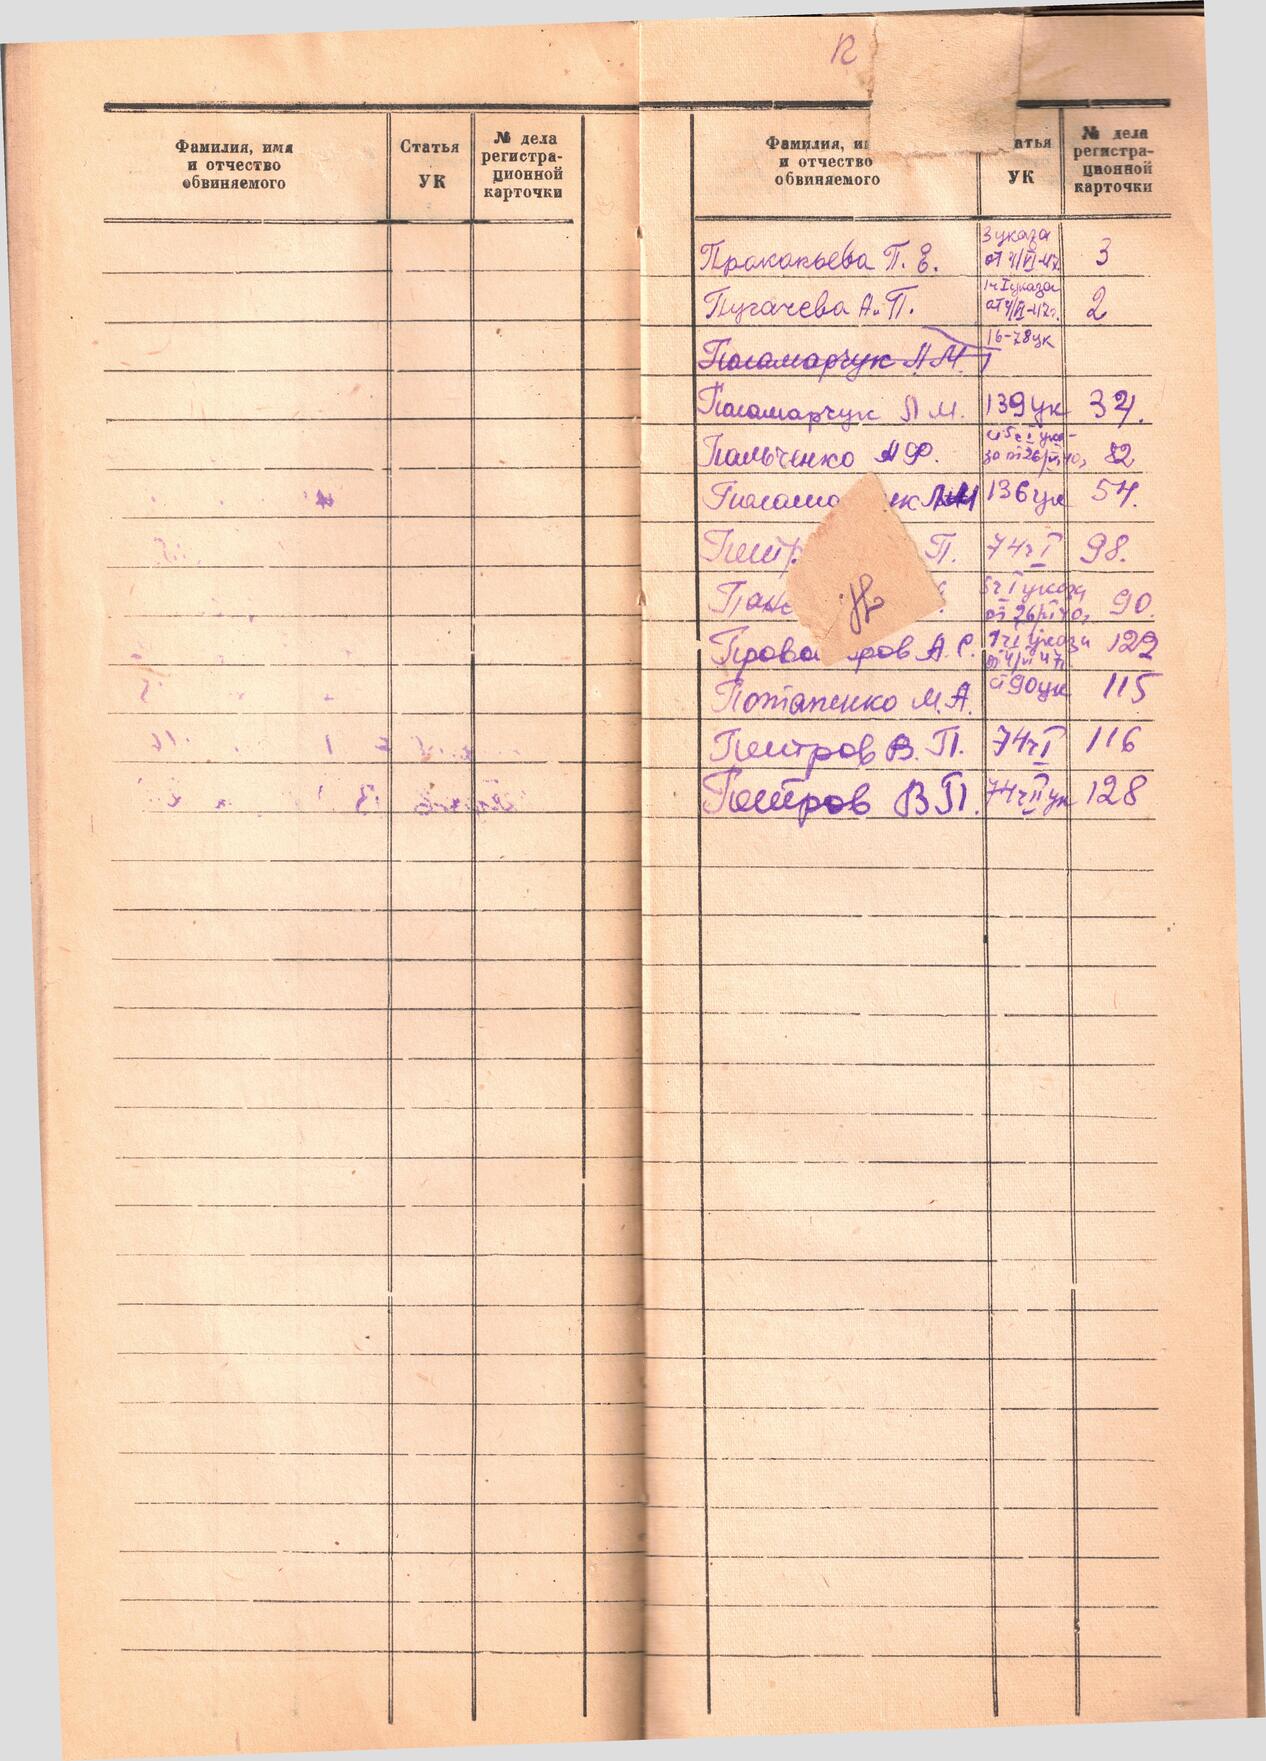 Фамилия, имя
и отчество
обвиняемого
Статья
УК
№ дела
регистра-
ционной
карточки
Фамилия,
и отчество
обвиняемого
УК
№ дела
регистра-
ционной
карточки
Прокопьева П. Е. 3 указа от 4/VI-47 3
Пугачева А. П. 1ч I указа от 4/VI-47г. 2
Паламарчук А.М. 16-78 ук
Паламарчук Л М. 139 ук 34.
Пальченко А Ф. 82
136 ук 54.
П. 74ч I 98.
5ч I указа от 26/VI 40г 90.
А. С. 122
Потапенко М. А. ст 90 ук 115
Петров В. П. 74ч I 116
Петров В П. 74ч II ук 128